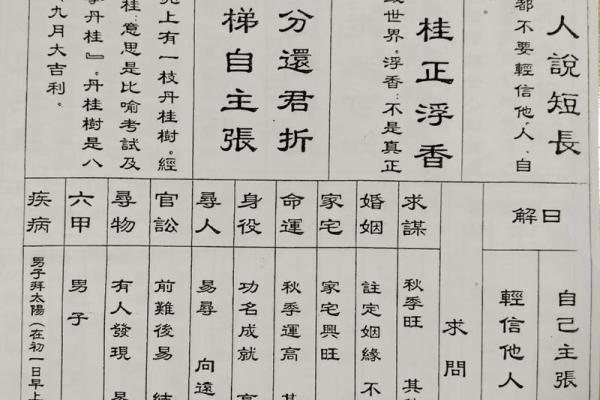 人說短長
都不要輕信他人、自
桂正浮香
世界。浮香:不是真正
分還君折
梯自主張
上有一枝丹桂樹。經
桂:意思是比喻考試及
丹桂』。丹桂樹是八
九月大吉利。
日解
自己主張
輕信他人
求問
求謀
秋季旺
婚姻
註定姻緣 不
家宅
家宅興旺
命運
秋季運高
身役
功名成就
尋人
易尋 向遠
官訟
前難後易
尋物
有人發現
六甲
男子
疾病
男子拜太陽(在初一日早上